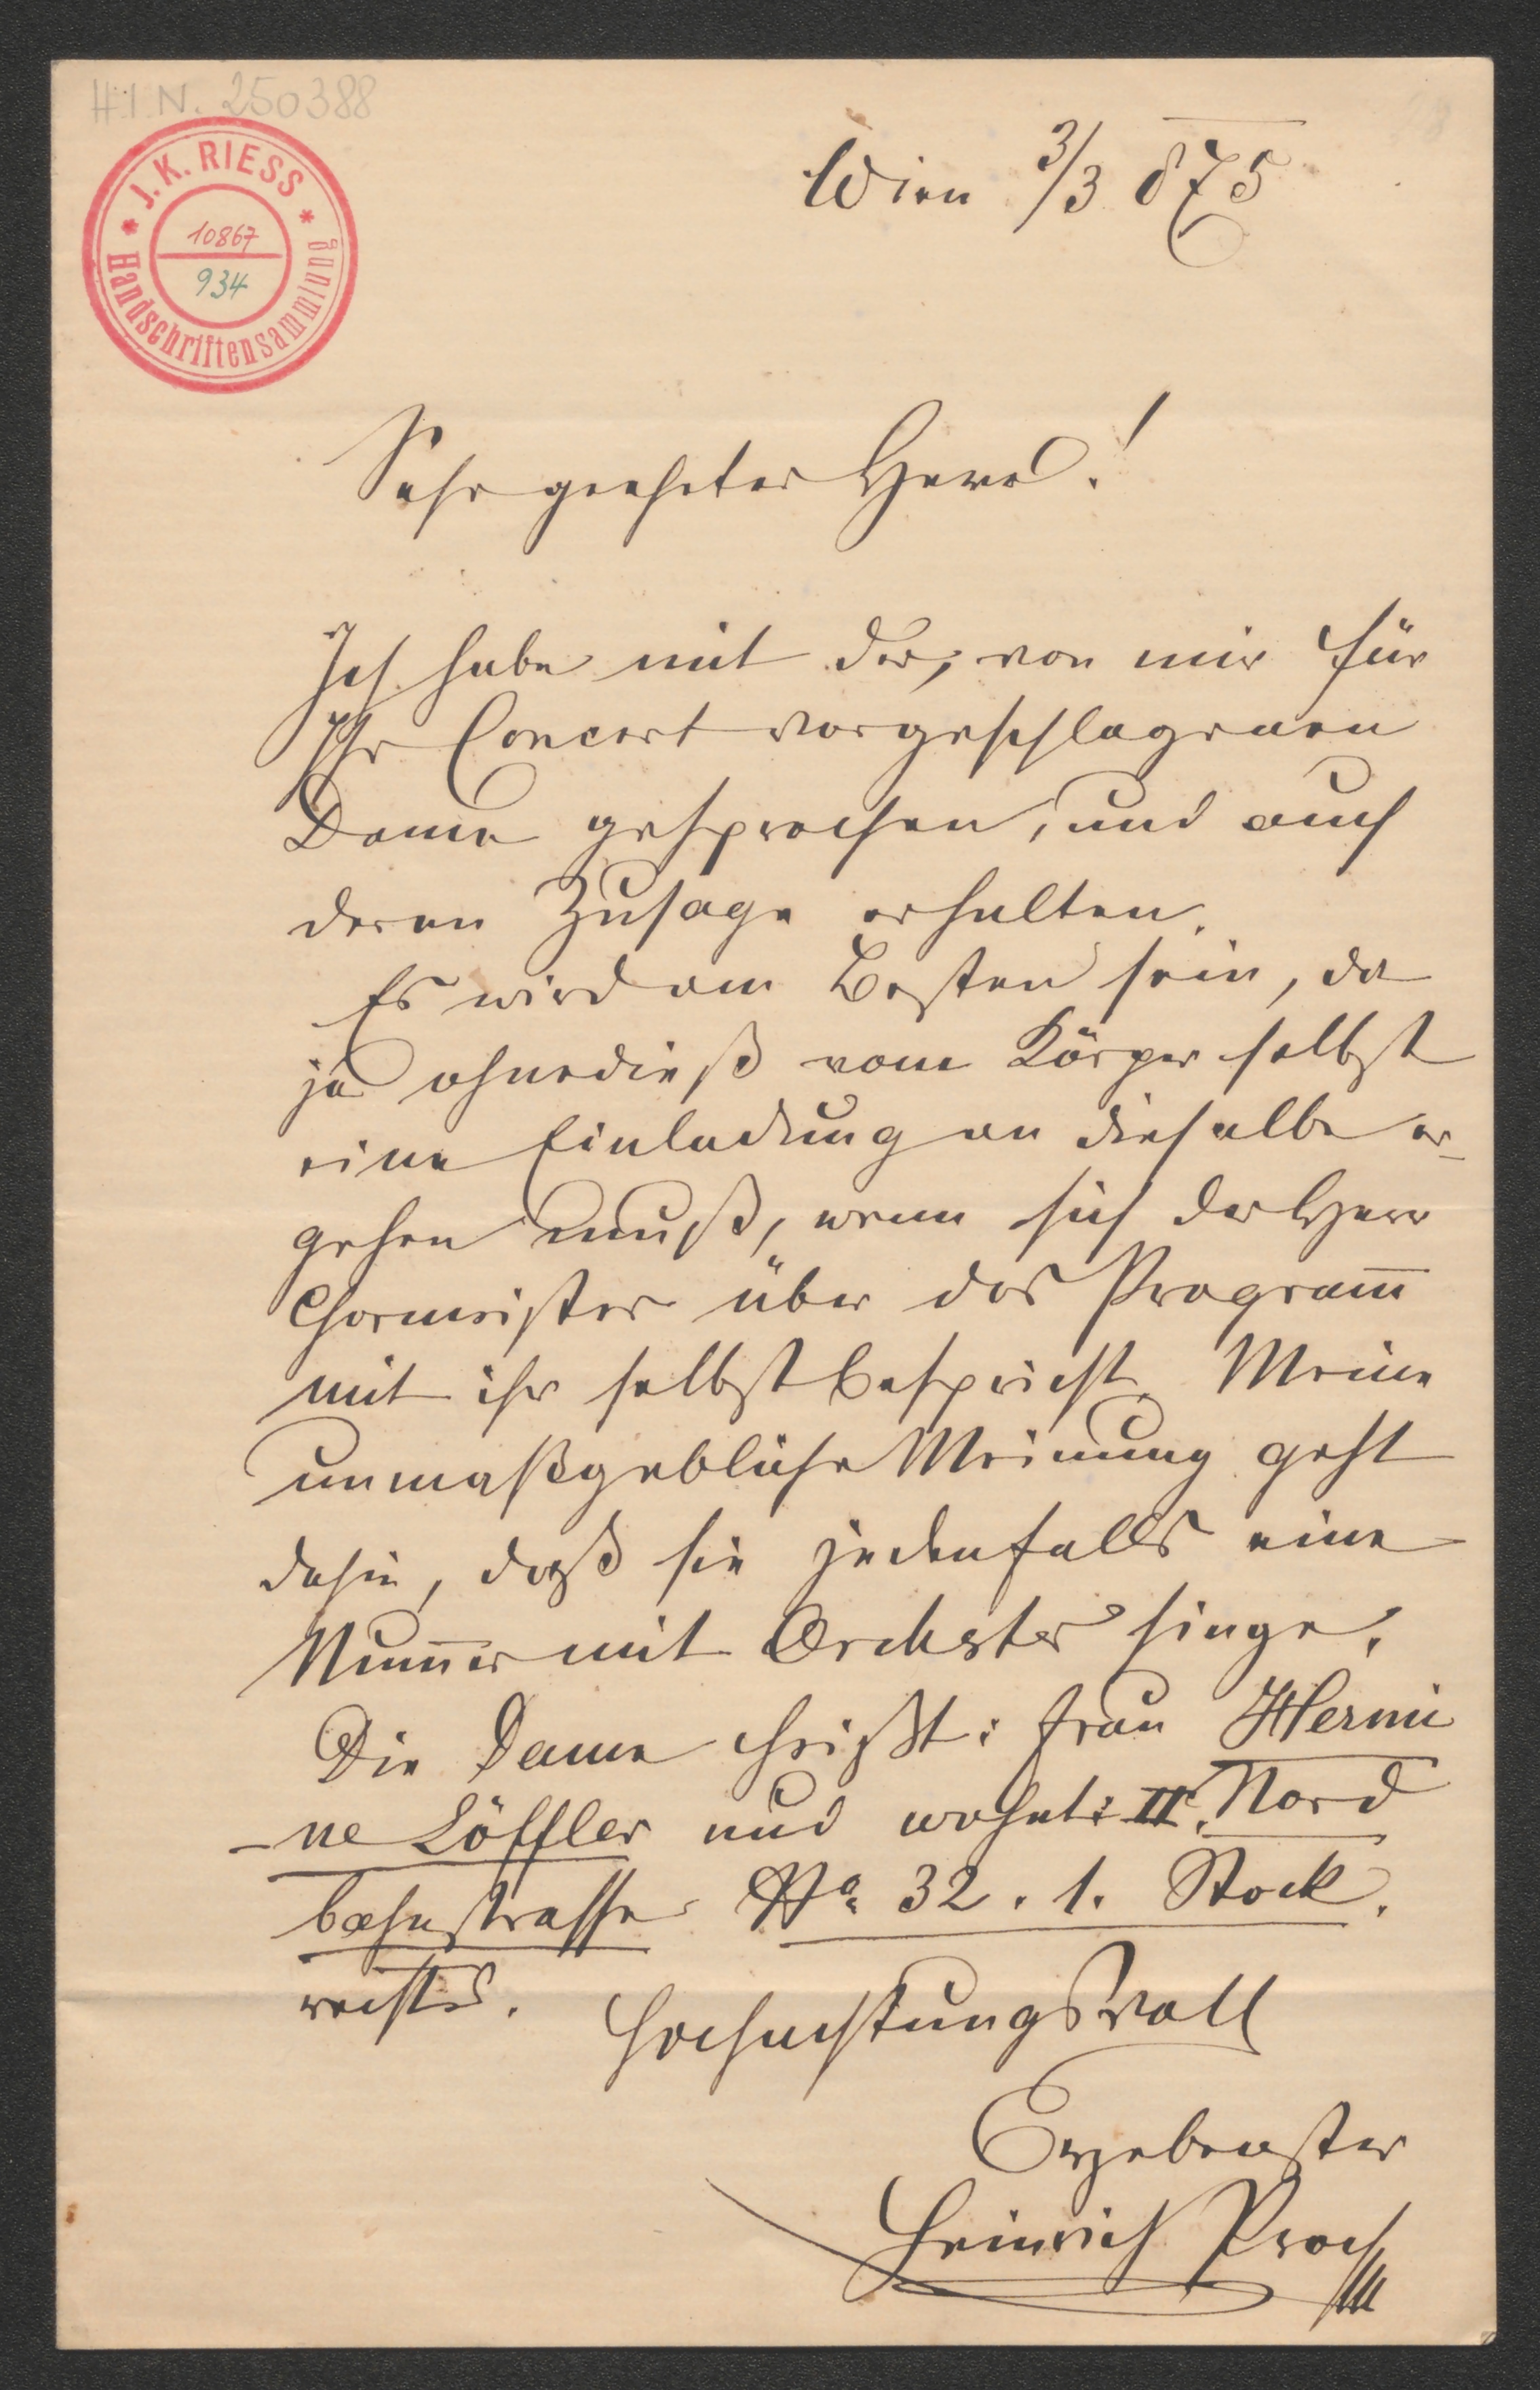 H.I.N. 250388
J. K. RIESS
Handschriftensammlung
10867
934
Wien 3/3 875
Sehr geehrter Herr!
Ich habe mit der, von mir für
Ihr Concert vorgeschlagenen
Dame gesprochen, und auch
deren Zusage erhalten.
Es wird am Besten sein, da
ja ohnedieß vom Körper selbst
eine Einladung an dieselbe er-
gehen muß, wenn sich der Herr
Chormeister über das Program̄
mit ihr selbst bespricht. Meine
unmaßgebliche Meinung geht
dahin, daß sie jedenfalls eine
Num̄er mit Orchester singe.
Die Dame heißt: Frau Hermi
-ne Löffler und wohnt: II. Nord
bahnstrasse No 32. 1. Stock.
rechts.
Hochachtungsvoll
Ergebenster
Heinrich Proch